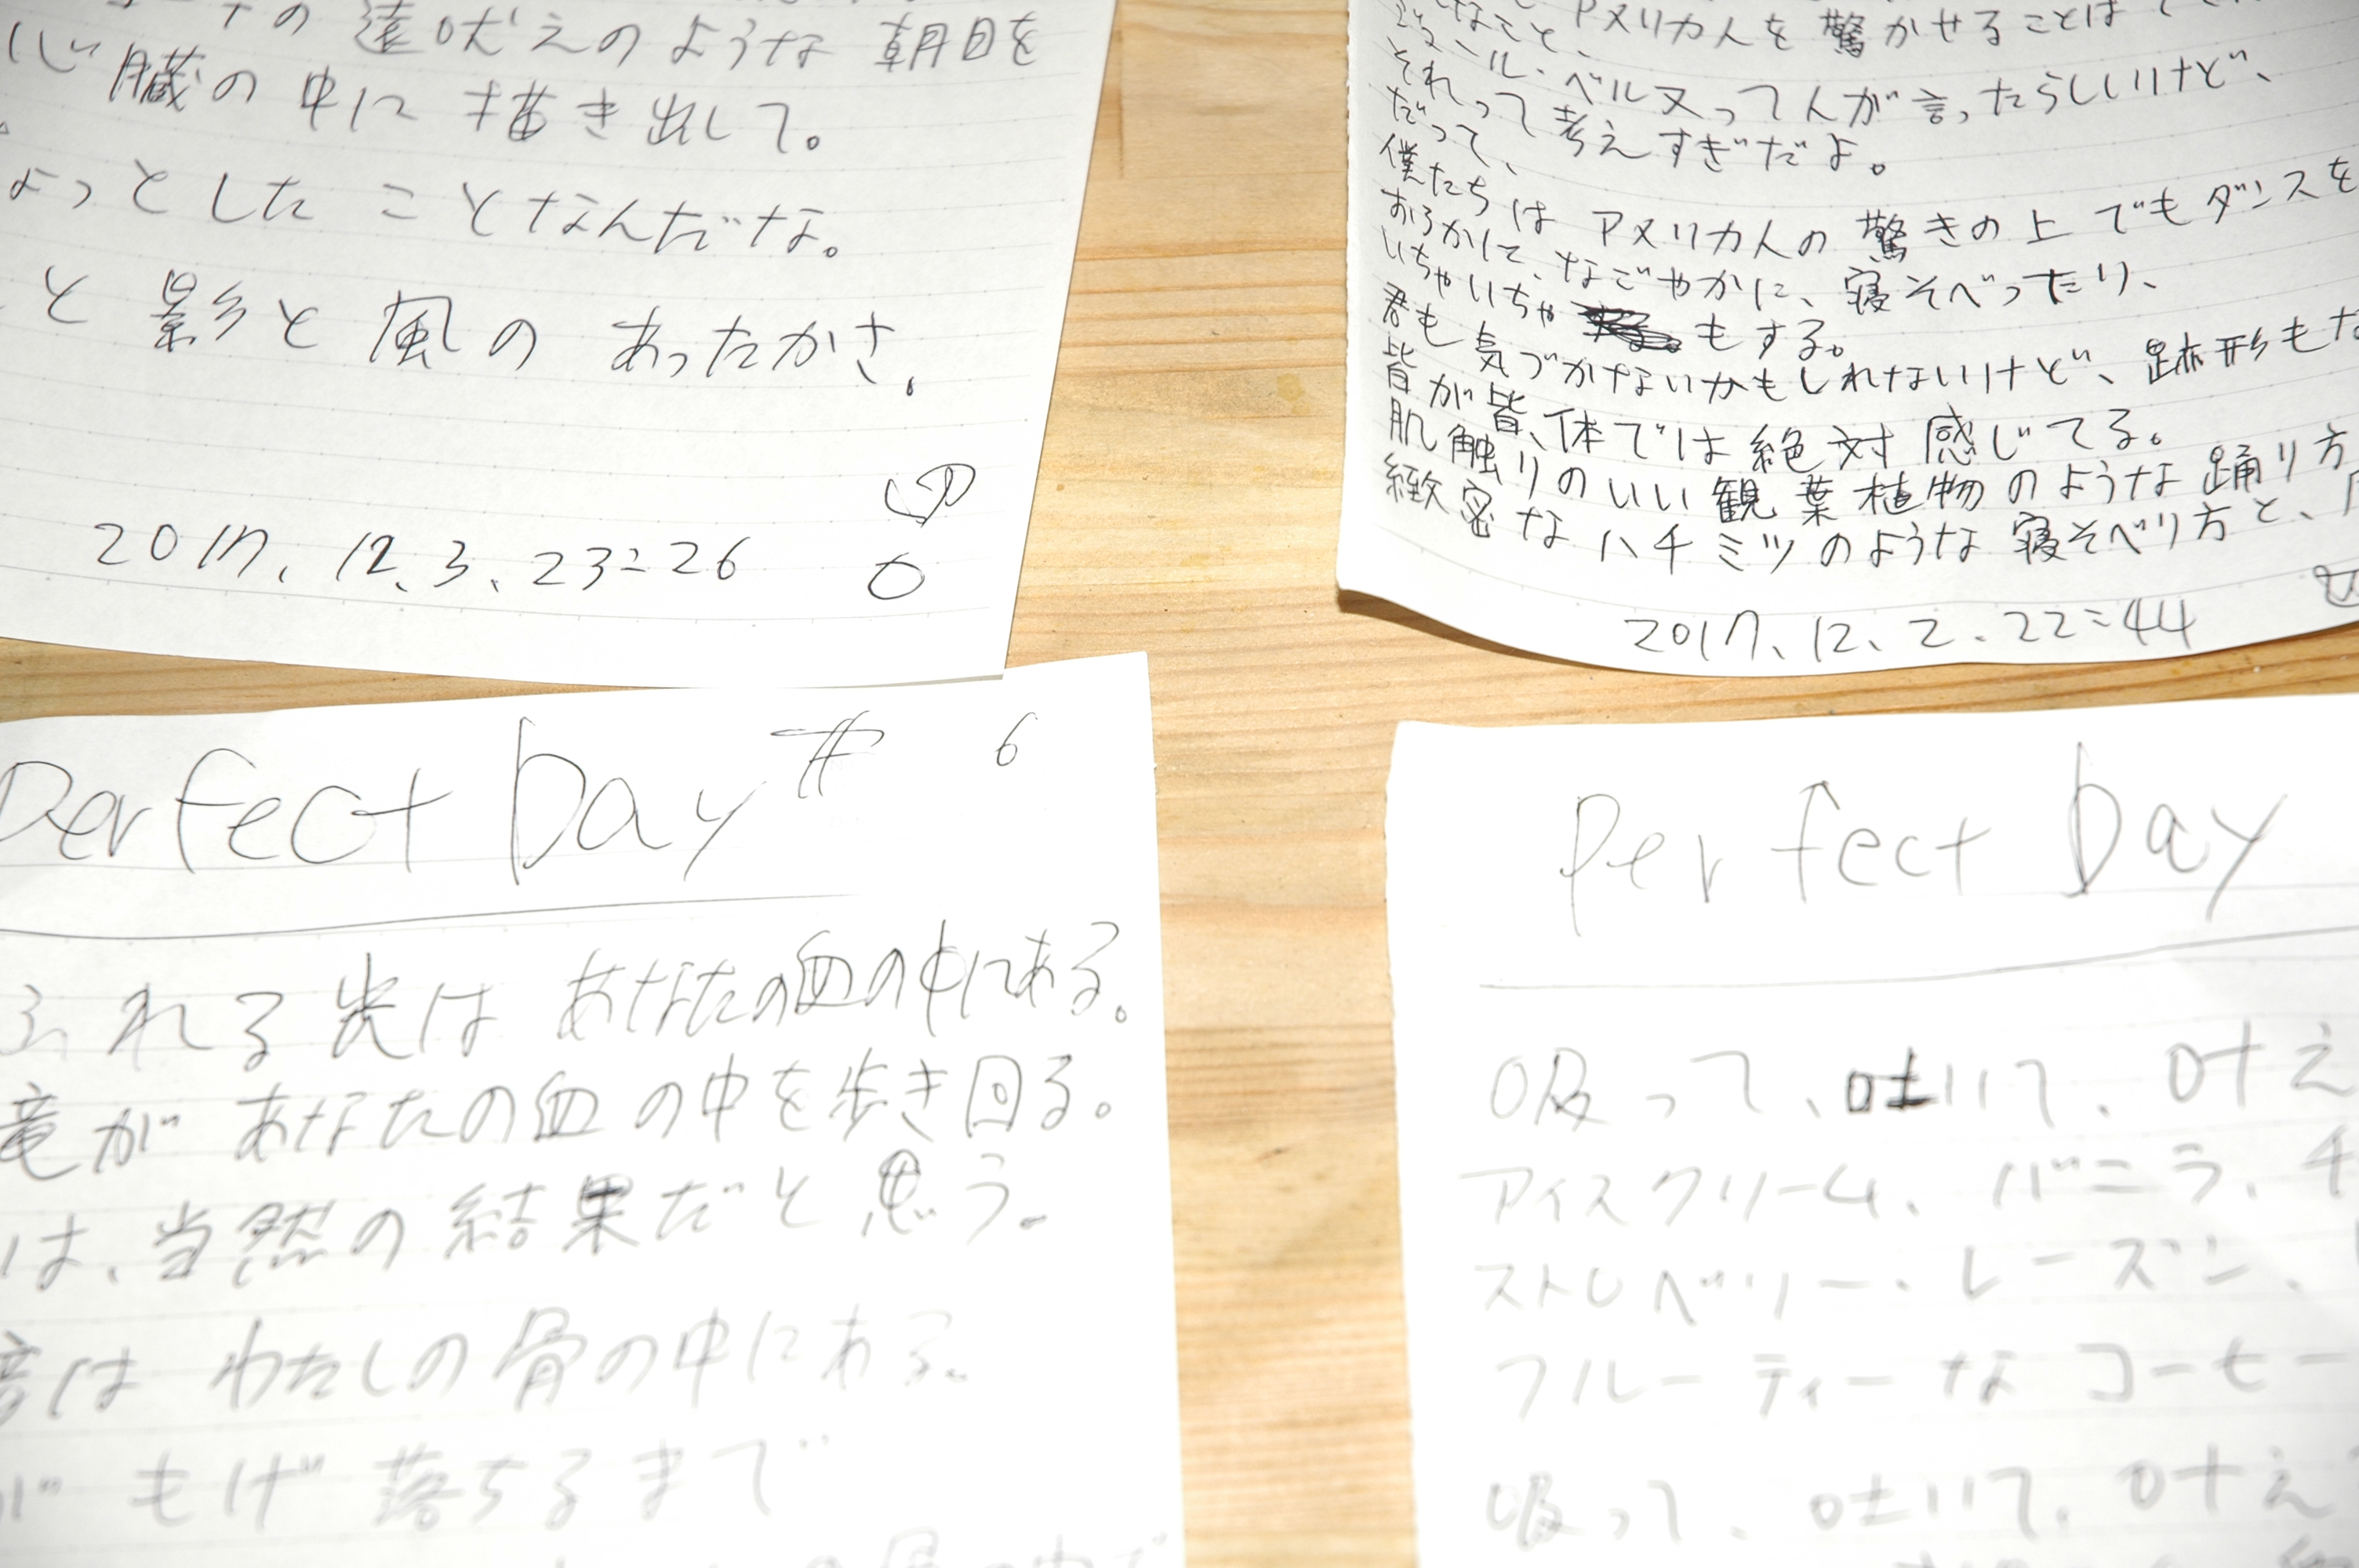 の遠吠えのような朝日を
心臓の中に描き出して。
ょっとしたことなんだな。
と影と風のあったかさ。
2017、12、3、23:26
アメリカ人を驚かせることは
ル・ベルヌってんが言ったらしいけど、
それって考えすぎだよ。
だって、
僕たちはアメリカ人の驚きの上でもダンスを
おろかに、なごやかに、寝そべったり、
いちゃいちゃもする。
君も気づかないかもしれないけど、跡形もな
皆が皆、体では絶対感じてる。
肌触りのいい観葉植物のような踊り方
緻密なハチミツのような寝そべり方と、
2017、12、2、22:44
Perfect Day # 6
ふれる炎は あなたの血の中にある。
竜が あなたの血の中を歩き回る。
は、当然の結果だと思う。
は わたしの骨の中にある。
が もげ落ちるまで
Perfect Day
吸って、吐いて、叶え
アイスクリーム、バニラ、チ
ストロベリー、レーズン、
フルーティーなコーヒー
吸って、吐いて、叶え